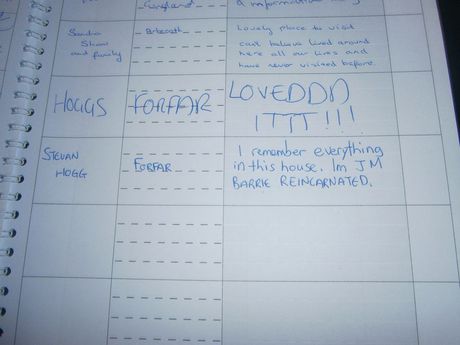 England
& information
Sandra
Shaw
and family
Arbroath
Lovely place to visit
cant believe lived around
here all our lives and
have never visited before.
HOGGS
FORFAR
LOVEDDD
ITTT!!!
STEVAN
HOGG
FORFAR
I remember everything
in this house. Im JM
BARRIE REINCARNATED.